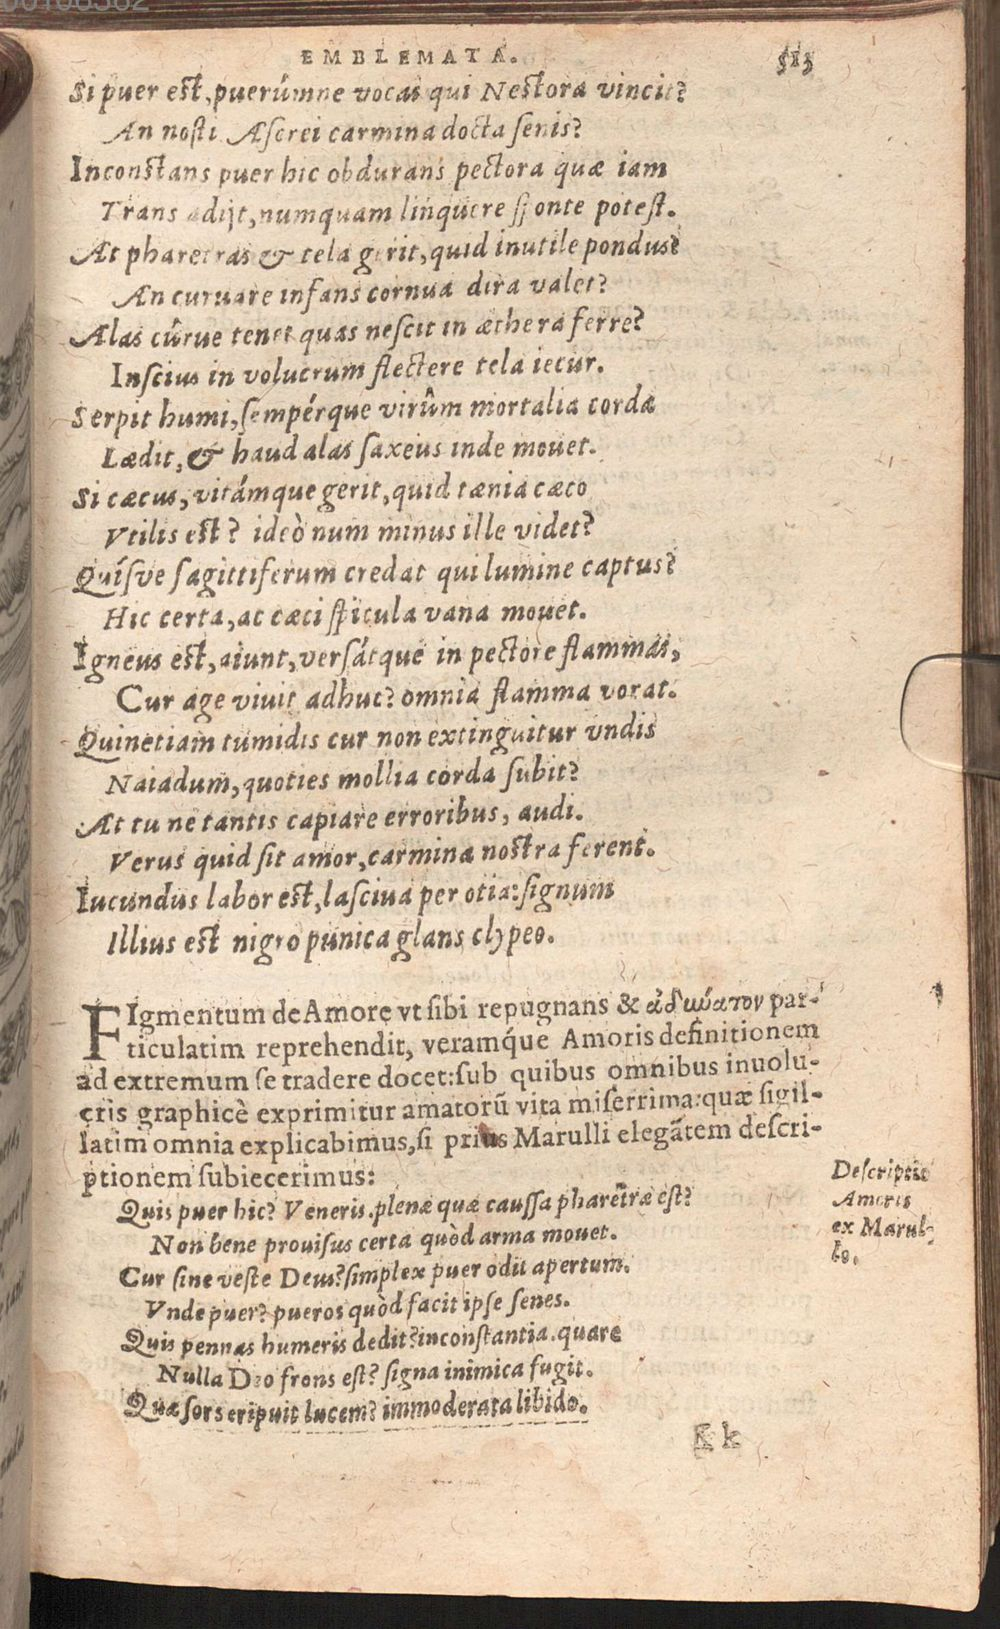 00106562
EMBLEMATA. 513
Si puer est, puerúmne vocas qui Nestora vincit?
An nosti Ascrei carmina docta senis?
Inconstans puer hic obdurans pectora quæ iam
Trans adijt, numquam linquere sponte potest.
At pharetras & tela gerit, quid inutile pondus?
An curuare infans cornua dira valet?
Alas cûrve tenet quas nescit in æthera ferre?
Inscius in volucrum flectere tela iecur.
Serpit humi, sempérque virûm mortalia corda
Lædit, & haud alas saxeus inde mouet.
Si cæcus, vitámque gerit, quid tænia cæco
Vtilis est? ideò num minus ille videt?
Quísve sagittiferum credat qui lumine captus?
Hic certa, ac cæci spicula vana mouet.
Igneus est, aiunt, versátque in pectore flammas,
Cur age viuit adhuc? omnia flamma vorat.
Quinetiam tumidis cur non extinguitur vndis
Naiadum, quoties mollia corda subit?
At tu ne tantis capiare erroribus, audi.
Verus quid sit amor, carmina nostra ferent.
Iucundus labor est, lasciua per otia: signum
Illius est nigro punica glans clypeo.
FIgmentum de Amore vt sibi repugnans & ἀδύνατον par-
ticulatim reprehendit, veramq́ue Amoris definitionem
ad extremum se tradere docet: sub quibus omnibus inuolu-
cris graphicè exprimitur amatorũ vita miserrima: quæ sigil-
latim omnia explicabimus, si prius Marulli elegãtem descri-
ptionem subiecerimus:
Quis puer hic? Veneris. plenæ quæ caussa pharetræ est?
Non bene prouisus certa quòd arma mouet.
Cur sine veste Deus? simplex puer odit apertum.
Vnde puer? pueros quòd facit ipse senes.
Quis pennas humeris dedit? inconstantia. quare
Nulla Deo frons est? signa inimica fugit.
Quæ sors eripuit lucem? immoderata libido.
Descriptio
Amoris
ex Marul-
lo.
Kk